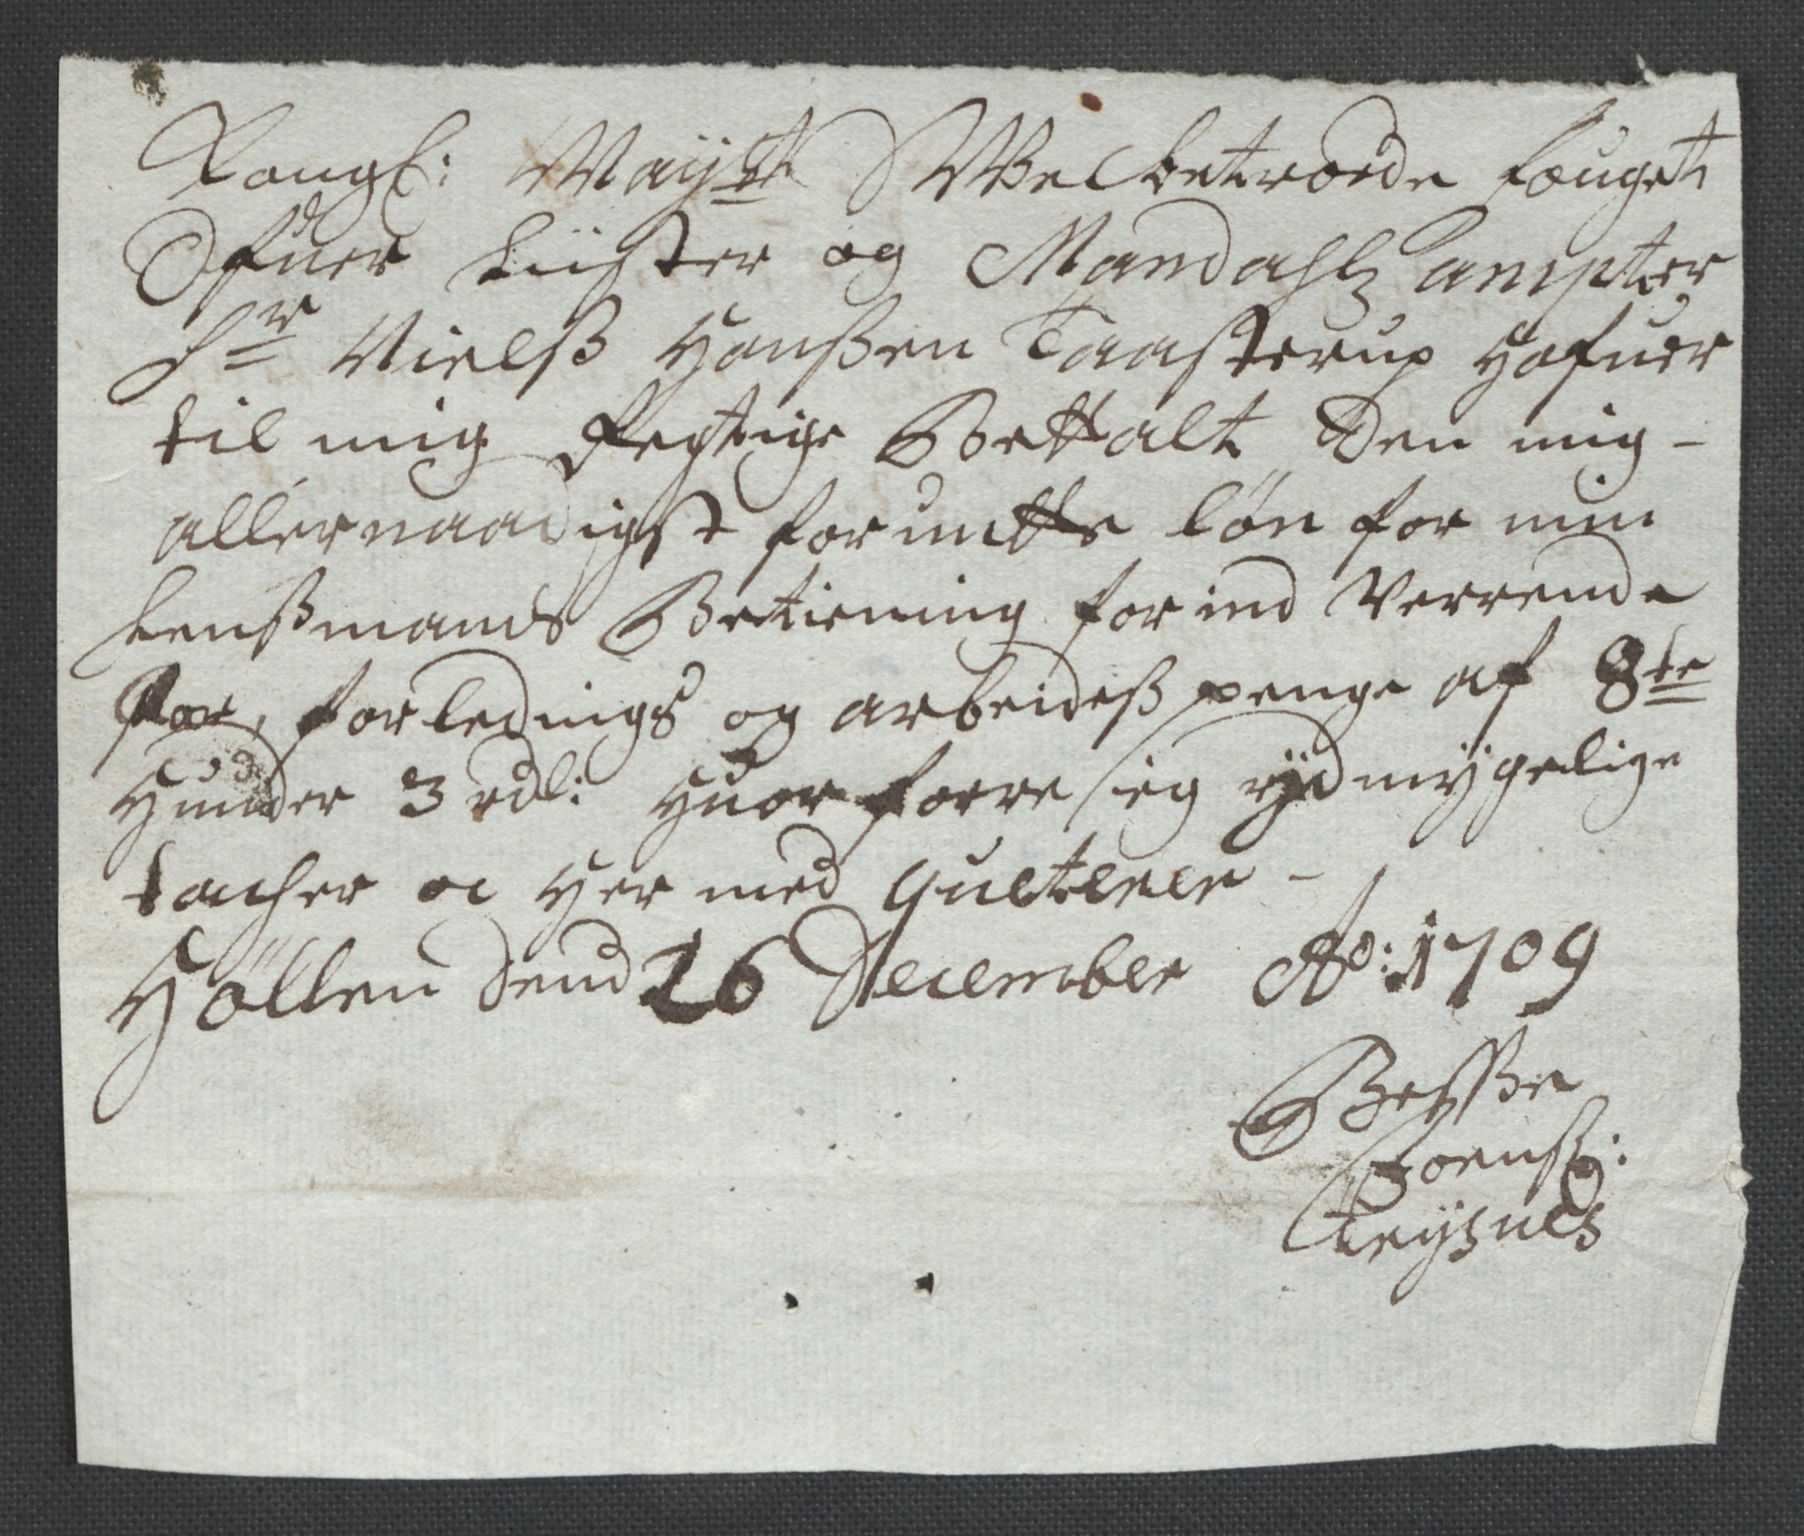 Kongl: Mayst: Welbetroede fouget
Ofuer Liister og Mandahlz ampter
Sr Nielß Hanßen Taasterup Hafuer
til mig Regtige Bettalt Den mig-
allernaadigst forundte løn for min
Lenßmands Betiening for ind Verrende
for, forlednings og arbeideß penge af 8te
Hunder 3 rdl: Huor forre ieg ydmygelige
tacher oc Her med quiterer -
Höllen Dend 26 December Ao: 1709
Joenß: